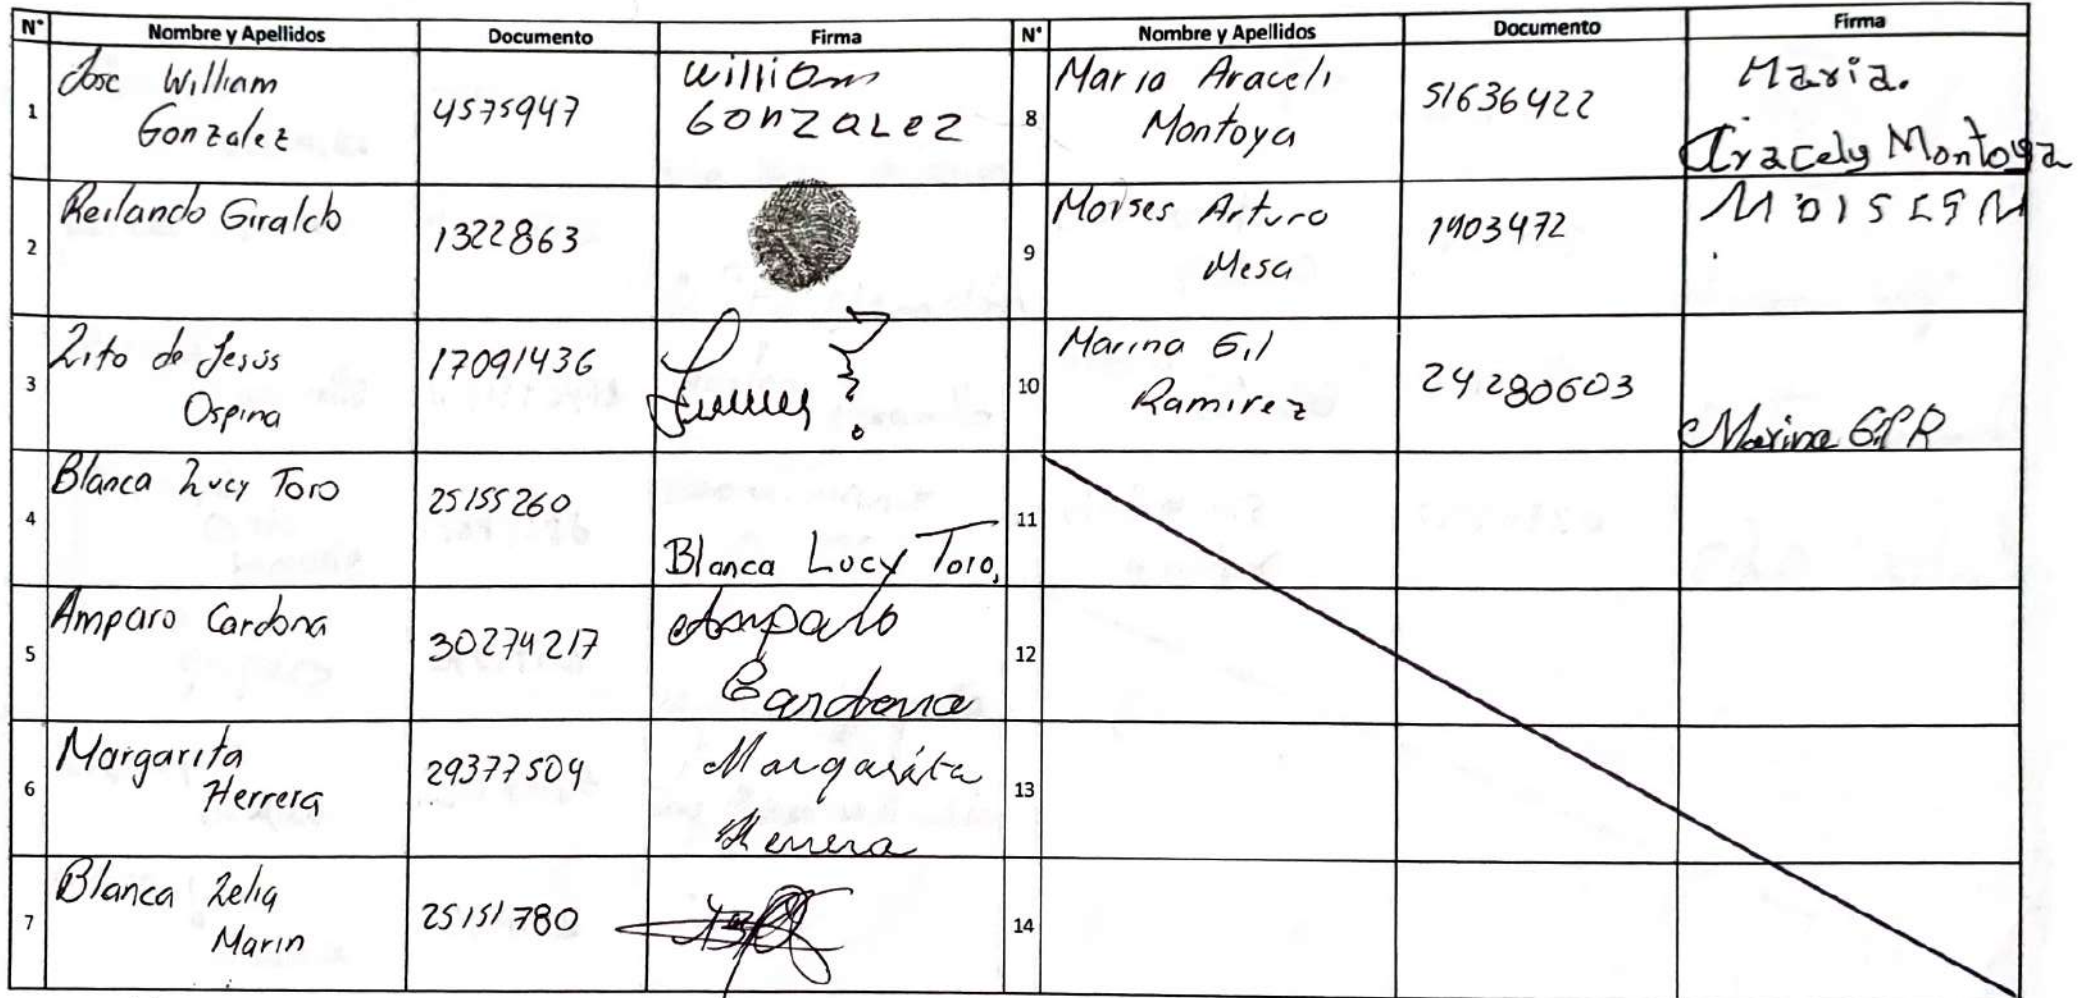 N° Nombre y Apellidos Documento Firma N° Nombre y Apellidos Documento Firma
1 Jose William
Gonzalez
4575947
William
GONZALEZ
2 Reilando Giraldo
1322863
3 Lito de Jesús
Ospina
17091436
4 Blanca Lucy Toro
25155260
Blanca Lucy Toro,
5 Amparo Cardona
30274217
Amparo
Cardona
6 Margarita
Herrera
29377509
Margarita
Herrera
7 Blanca Lelia
Marin
25151780
8 Maria Araceli
Montoya
51636422
Maria.
Aracely Montoya
9 Moises Arturo
Mesa
1403472
10 Marina Gil
Ramirez
24280603
Marina Gil R
11
12
13
14